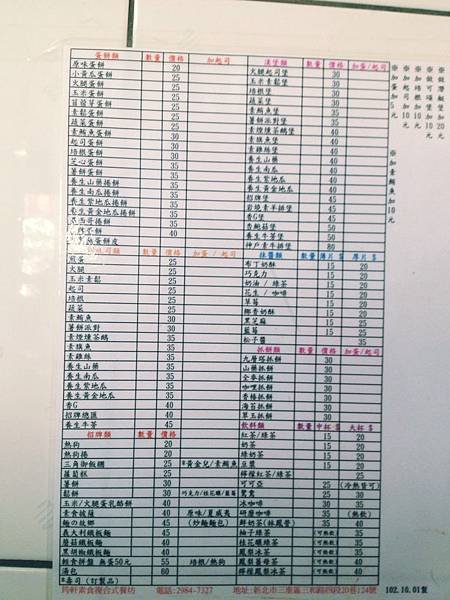 蛋餅類 數量 價格 加起司
原味蛋餅 20
小黃瓜蛋餅 25
火腿蛋餅 25
玉米蛋餅 25
苜蓿芽蛋餅 25
素鬆蛋餅 25
蔬菜蛋餅 25
素鮪魚蛋餅 30
起司蛋餅 30
培根蛋餅 30
芝心蛋餅 30
薯餅蛋餅 30
養生山藥捲餅 35
養生南瓜捲餅 35
養生紫地瓜捲餅 35
養生黃金地瓜捲餅 35
墨西哥捲餅 40
數量 價格 加蛋/起司
煎蛋 25
火腿 25
玉米素鬆 25
起司 25
培根 25
蔬菜 25
素鮪魚 30
薯餅派對 30
素煙燻茶鵝 35
素旗魚 35
素雞絲 35
養生山藥 35
養生南瓜 35
養生紫地瓜 35
養生黃金地瓜 35
香G 40
招牌總匯 40
養生牛蒡 45
招牌類 數量 價格
熱狗 20
熱狗捲 20
三角御飯糰 25 *黃金兒/素鮪魚
蘿蔔糕 25
薯餅 30
鬆餅 30 巧克力/桂花釀/藍莓
玉米/火腿蛋乳酪餅 40
素食披薩 40 原味/夏威夷
麵の故鄉 45 (炒麵麵包)
義大利鐵板麵 45
蘑菇鐵板麵 45
黑胡椒鐵板麵 45
輕烤拼盤 無蛋50元 55 培根/熱狗
湯包 60
*壽司(訂製品)
漢堡類 數量 價格 加蛋/起司
火腿起司堡 30
玉米素鬆堡 30
培根堡 30
蔬菜堡 30
素鮪魚堡 35
薯餅派對堡 35
素煙燻茶鵝堡 40
素旗魚堡 40
素雞絲堡 40
養生山藥 40
養生南瓜 40
養生紫地瓜 40
養生黃金地瓜 40
招牌堡 45
岩燒素羊排堡 45
香G堡 45
香鮑菇堡 50
養生牛蒡堡 50
神戶素牛排堡 80
抹醬類 數量 薄片多 厚片多
布丁奶酥 15 20
巧克力 15 20
奶油 / 綠茶 15 20
花生 / 咖啡 15 20
草莓 15 20
椰香奶酥 15 20
黑芝麻 15 25
藍莓 15 25
松子醬 35
抓餅類 數量 價格 加蛋/起司
九層塔抓餅 30
山藥抓餅 30
全麥抓餅 30
咖哩抓餅 30
香椿抓餅 30
海苔抓餅 30
翠玉抓餅 30
飲料類 數量 中杯多 大杯多
紅茶/綠茶 15 20
奶茶 15 20
奶綠 15 20
豆漿 15 20
檸檬紅茶/綠茶 25
可可亞 25 (冷熱皆可)
鴛鴦 25 30
冰咖啡 25 30
研磨咖啡 35 (熱飲)
鮮奶茶(林鳳營) 35 40
柚子綠茶 (可熱飲) 35
桂花釀綠茶 (可熱飲) 35
鳳梨冰茶 (可熱飲) 35
鳳梨薑母茶 (可熱飲) 35
檸檬鳳梨冰茶 35
※加蛋5元
※加起司10元
※加培根10元
※加素鮪魚10元
均軒素食複合式餐坊 電話:2984-7327 地址:新北市三重區三和路四段20巷124號 102.10.01製